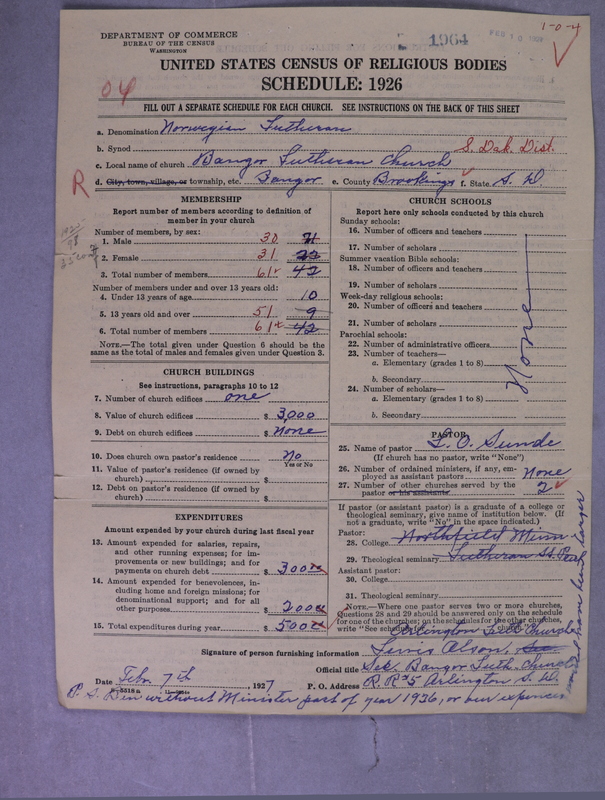 1-0-4
DEPARTMENT OF COMMERCE
BUREAU OF THE CENSUS
WASHINGTON
1964
FEB 10
UNITED STATES CENSUS OF RELIGIOUS BODIES
SCHEDULE: 1926
04
FILL OUT A SEPARATE SCHEDULE FOR EACH CHURCH. SEE INSTRUCTIONS ON THE BACK OF THIS SHEET
a. Denomination Norwegian Lutheran
b. Synod S. Dak. Dist.
c. Local name of church Bangor Lutheran Church
R d. City, town, village, or township, etc. Bangor e. County Brookings f. State S. D.
MEMBERSHIP
Report number of members according to definition of
member in your church
Number of members, by sex:
1. Male 30 21
2. Female 31
3. Total number of members 61 42
Number of members under and over 13 years old:
4. Under 13 years of age 10
5. 13 years old and over 51 9
6. Total number of members 61 42
NOTE.—The total given under Question 6 should be the
same as the total of males and females given under Question 3.
CHURCH BUILDINGS
See instructions, paragraphs 10 to 12
7. Number of church edifices one
8. Value of church edifices $ 3,000
9. Debt on church edifices $ None
10. Does church own pastor's residence No
Yes or No
11. Value of pastor's residence (if owned by
church) $
12. Debt on pastor's residence (if owned by
church) $
EXPENDITURES
Amount expended by your church during last fiscal year
13. Amount expended for salaries, repairs,
and other running expenses; for im-
provements or new buildings; and for
payments on church debt $ 300
14. Amount expended for benevolences, in-
cluding home and foreign missions; for
denominational support; and for all
other purposes $ 200
15. Total expenditures during year $ 500
CHURCH SCHOOLS
Report here only schools conducted by this church
Sunday schools:
16. Number of officers and teachers
17. Number of scholars
Summer vacation Bible schools:
18. Number of officers and teachers
19. Number of scholars
Week-day religious schools:
20. Number of officers and teachers
21. Number of scholars
Parochial schools:
22. Number of administrative officers
23. Number of teachers—
a. Elementary (grades 1 to 8)
b. Secondary
24. Number of scholars—
a. Elementary (grades 1 to 8)
b. Secondary
None
PASTOR
25. Name of pastor L. O. Sunde
(If church has no pastor, write "None")
26. Number of ordained ministers, if any, em-
ployed as assistant pastors None
27. Number of other churches served by the
pastor or his assistants 2
If pastor (or assistant pastor) is a graduate of a college or
theological seminary, give name of institution below. (If
not a graduate, write "No" in the space indicated.)
Pastor:
28. College Northfield Minn
29. Theological seminary Lutheran St. Paul
Assistant pastor:
30. College
31. Theological seminary
NOTE.—Where one pastor serves two or more churches,
Questions 28 and 29 should be answered only on the schedule
for one of the churches; on the schedules for the other churches,
write "See schedule Arlington Luth Church
Signature of person furnishing information Lewis Olson, Sec
Official title Sek. Bangor Luth. Church
Date Feb. 7th, 1927 P. O. Address R R #5 Arlington, S. D.
P. S. Ben without Minister part of year 1926, or our expences would have been larger